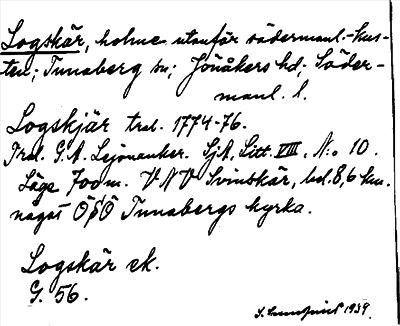 Logskär, holme utanför södermanl.-kus-
ten; Tunaberg sn; Jönåkers hd; Söder-
manl. l.
Logskjär trol. 1774-76.
Trol. G.A. Lejonanker. SjA, Litt. VIII, N:o 10.
Läge 700 m. VNV Svinskär, bel. 8,6 km.
något ÖSÖ Tunabergs kyrka.
Logskär ek.
G. 56.
S. Lundqvist 1939